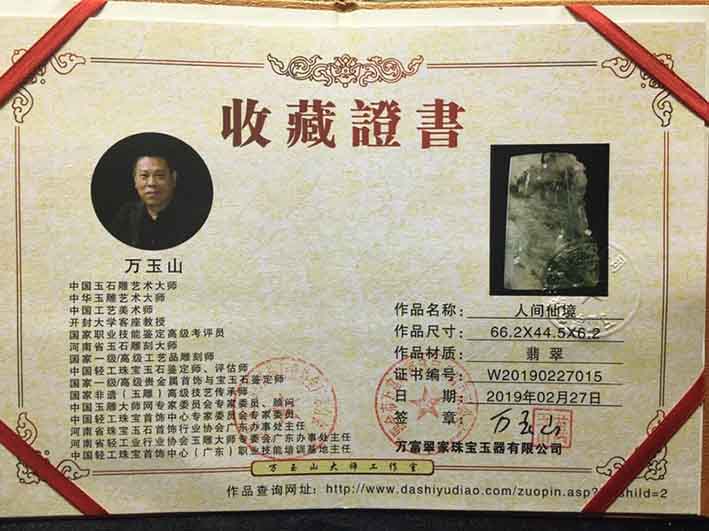 收藏證書
万玉山
中国玉石雕艺术大师
中华玉雕艺术大师
中国工艺美术师
开封大学客座教授
国家职业技能鉴定高级考评员
河南省玉石雕刻大师
国家一级/高级工艺品雕刻师
中国轻工珠宝玉石鉴定师、评估师
国家一级/高级贵金属首饰与宝玉石鉴定师
国家非遗(玉雕)高级技艺传承师
中国玉雕大师网专家委员会专家委员、顾问
中国轻工珠宝首饰中心专家委员会专家委员
河南省珠宝玉石首饰行业协会广东办事处主任
河南省轻工业行业协会玉雕大师专委会广东办事处主任
中国轻工珠宝首饰中心(广东)职业技能培训基地主任
作品名称: 人间仙境
作品尺寸: 66.2X44.5X6.2
作品材质: 翡翠
证书编号: W20190227015
日期: 2019年02月27日
签章: 万玉山
万富翠家珠宝玉器有限公司
万玉山大师工作室
作品查询网址: http://www.dashiyudiao.com/zuopin.asp? shild=2